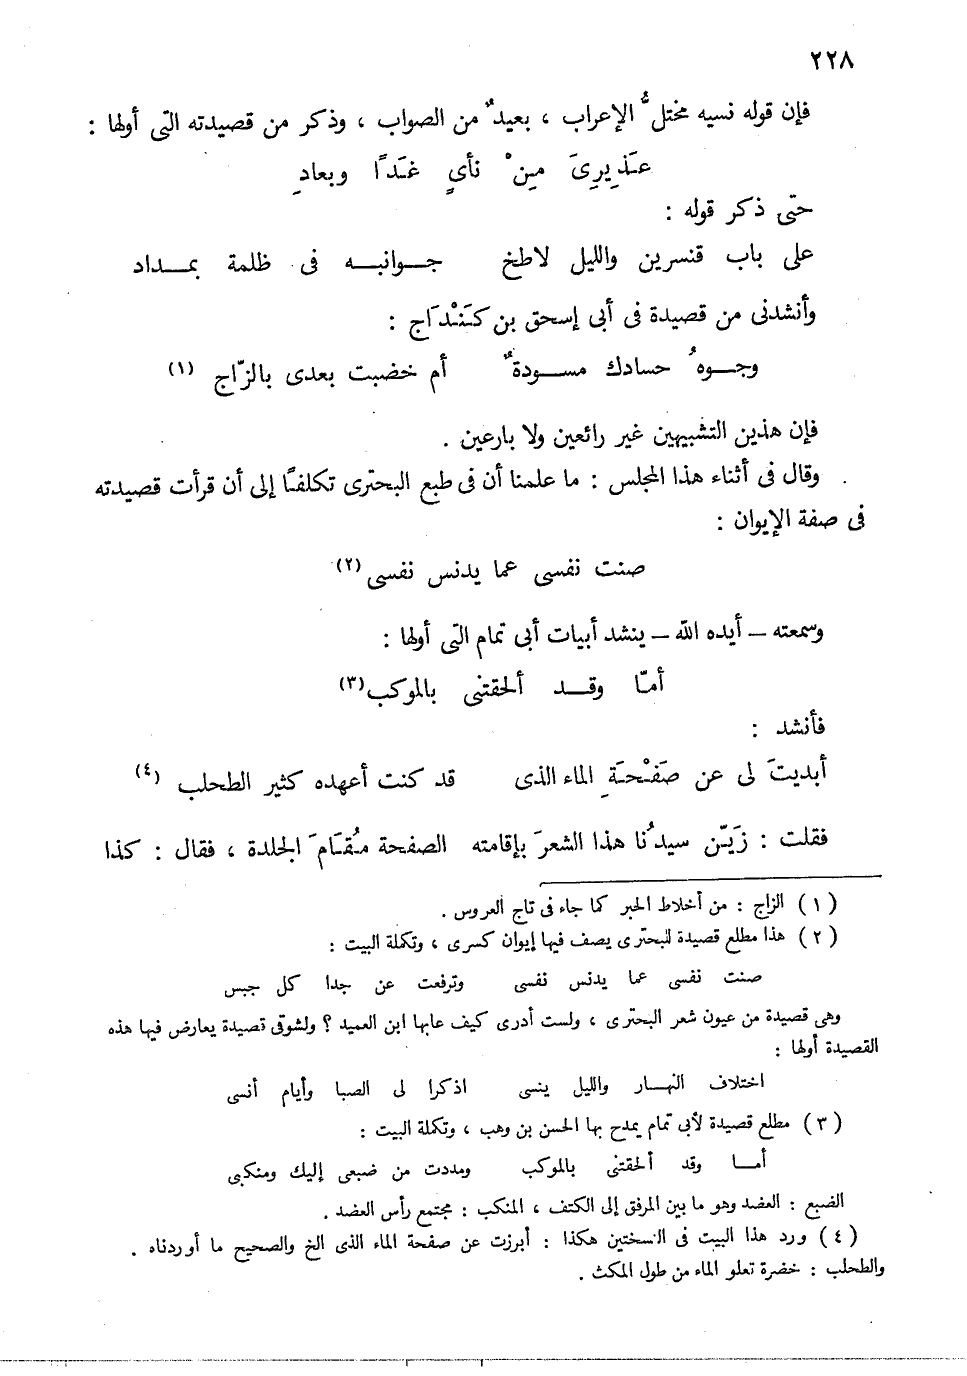 ٢٢٨
فإن قوله نسيه مختلُّ الإعراب ، بعيدٌ من الصواب ، وذكر من قصيدته التى أولها :
عَذِيرِىَ مِنْ نأىٍ غَدًا وبعادِ
حتى ذكر قوله :
على باب قنسرين والليل لاطخ جوانبه فى ظلمة بمداد
وأنشدنى من قصيدة فى أبى إسحق بن كَنْدَاج :
وجوهُ حسادك مسودةٌ أم خضبت بعدى بالزّاج (١)
فإن هذين التشبيهين غير رائعين ولا بارعين .
وقال فى أثناء هذا المجلس : ما علمنا أن فى طبع البحترى تكلفًا إلى أن قرأت قصيدته
فى صفة الإيوان :
صنت نفسى عما يدنس نفسى (٢)
وسمعته — أيده الله — ينشد أبيات أبى تمام التى أولها :
أمّا وقد ألحقتنى بالموكب (٣)
فأنشد :
أبديتَ لى عن صَفْحَةِ الماء الذى قد كنت أعهده كثير الطحلب (٤)
فقلت : زَيّن سيدُنا هذا الشعرَ بإقامته الصفحة مُقَامَ الجلدة ، فقال : كذا
( ١ ) الزاج : من أخلاط الحبر كما جاء فى تاج العروس .
( ٢ ) هذا مطلع قصيدة للبحترى يصف فيها إيوان كسرى ، وتكملة البيت :
صنت نفسى عما يدنس نفسى وترفعت عن جدا كل جبس
وهى قصيدة من عيون شعر البحترى ، ولست أدرى كيف عابها ابن العميد ؟ ولشوقى قصيدة يعارض فيها هذه
القصيدة أولها :
اختلاف النهار والليل ينسى اذكرا لى الصبا وأيام أنسى
( ٣ ) مطلع قصيدة لأبى تمام يمدح بها الحسن بن وهب ، وتكملة البيت :
أما وقد ألحقتنى بالموكب ومددت من ضبعى إليك ومنكبى
الضبع : العضد وهو ما بين المرفق إلى الكتف ، المنكب : مجتمع رأس العضد .
( ٤ ) ورد هذا البيت فى النسختين هكذا : أبرزت عن صفحة الماء الذى الخ والصحيح ما أوردناه .
والطحلب : خضرة تعلو الماء من طول المكث .